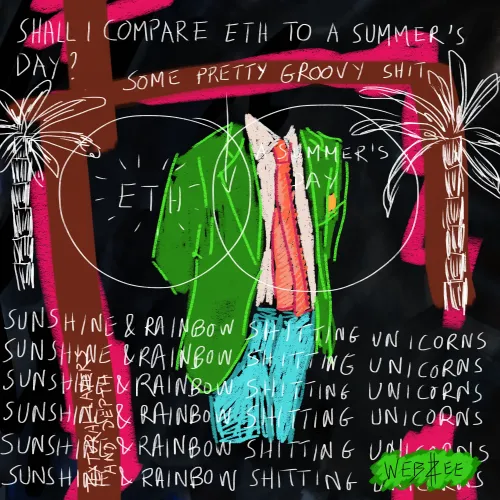 SHALL I COMPARE ETH TO A SUMMER'S
DAY?
SOME PRETTY GROOVY SHIT
ETH
SUMMER'S
DAY
SUNSHINE & RAINBOW SHITTING UNICORNS
SUNSHINE & RAINBOW SHITTING UNICORNS
SUNSHINE & RAINBOW SHITTING UNICORNS
SUNSHINE & RAINBOW SHITTING UNICORNS
SUNSHINE & RAINBOW SHITTING UNICORNS
SUNSHINE & RAINBOW SHITTING UNICORNS
LAYERS
DEPTH